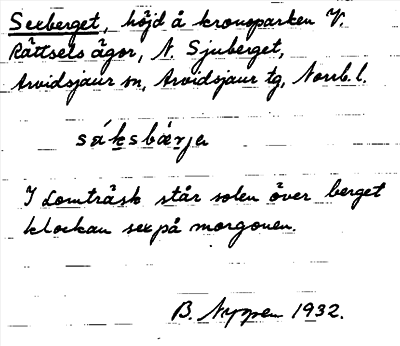 Sexberget, höjd å kronoparken V.
Rättsels ägor, N. Sjuberget,
Arvidsjaur sn, Arvidsjaur tg, Norrb. l.
sáksbærja
I Lomträsk står solen över berget
klockan sex på morgonen.
B. Nyppen 1932.